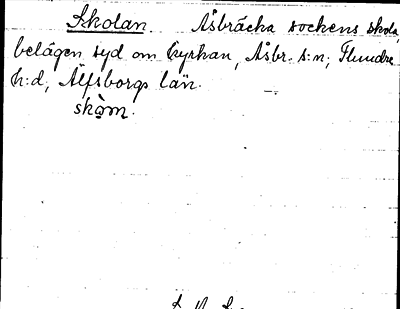 Skolan. Åsbräcka sockens skola,
belägen syd om kyrkan, Åsbr. s:n; Flundre
h:d, Älfsborgs län.
skòm.